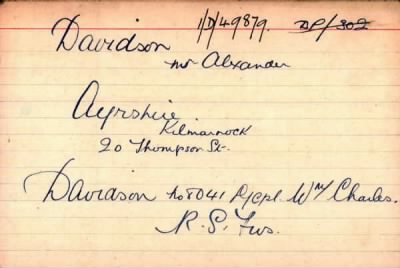 Davidson 1/D/49879. DP/302
Mr Alexander
Ayrshire
Kilmarnock
20 Thompson St.
Davidson No 8041 L/Cpl. Wm Charles.
R. S. Fus.